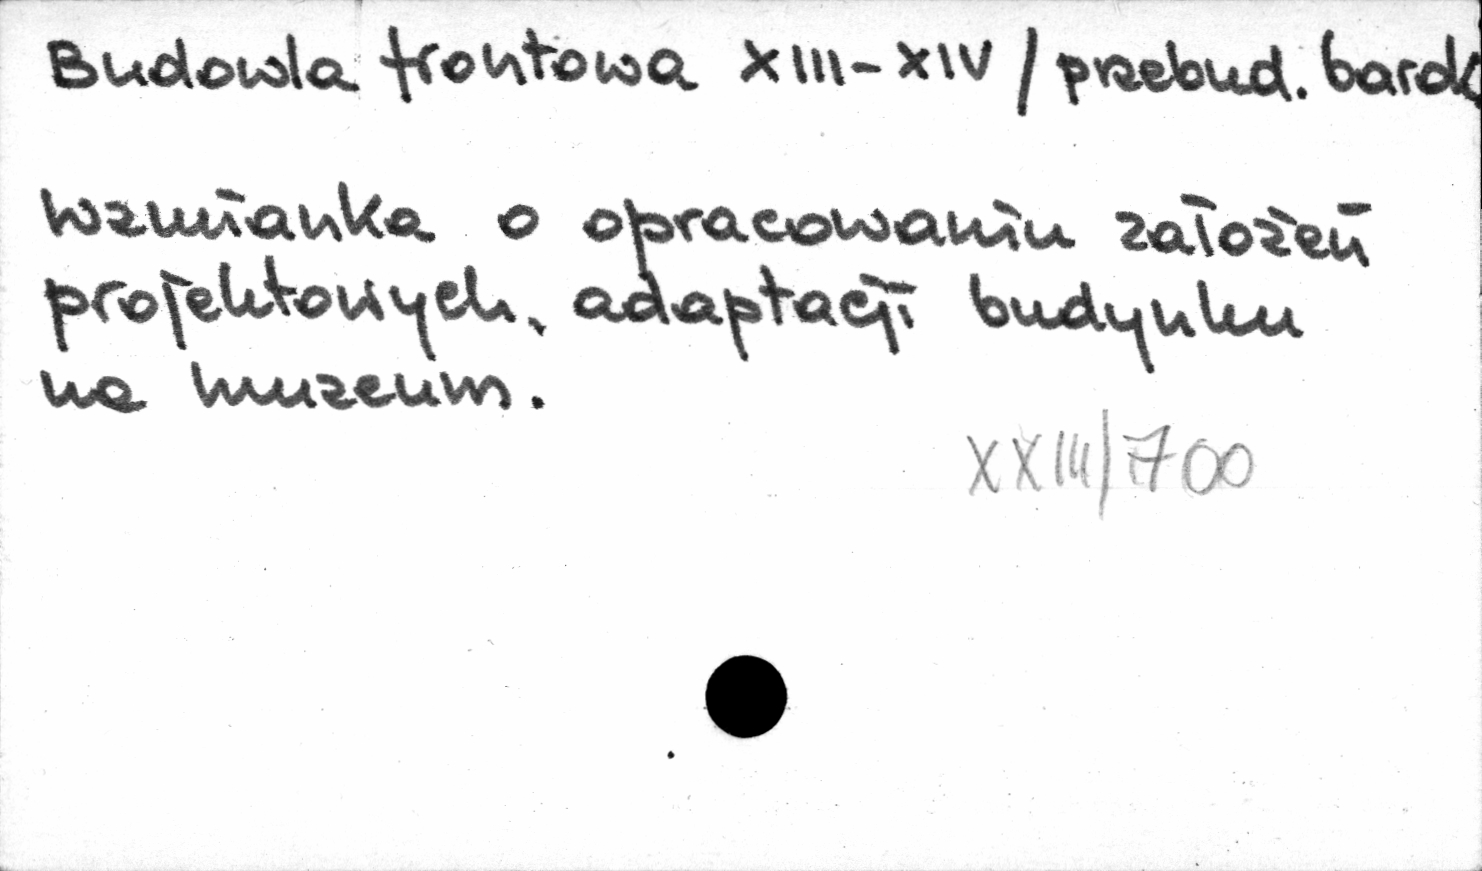 Budowla frontowa XIII-XIV / przebud. barok
Wzmianka o opracowaniu założeń
projektowych, adaptacji budynku
na muzeum.
XXIII/700